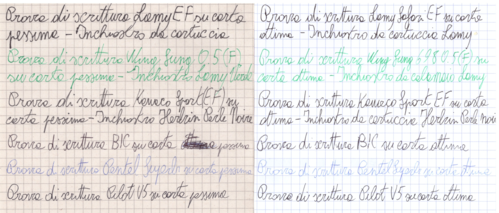 Prova di scrittura Lamy EF su carta
pessima - Inchiostro da cartuccia
Prova di scrittura Wing Sung 0.5 (F)
su carta pessima - Inchiostro Lamy
Prova di scrittura Kaweco Sport (EF) su
carta pessima - Inchiostro Herbin Perle Noire
Prova di scrittura BIC su carta pessima
Prova di scrittura Pentel su carta pessima
Prova di scrittura Pilot V5 su carta pessima
Prova di scrittura Lamy Safari EF su carta
ottima - Inchiostro da cartuccia Lamy
Prova di scrittura Wing Sung 698 0.5 (F) su
carta ottima - Inchiostro da calamaio Lamy
Prova di scrittura Kaweco Sport EF su carta
ottima - Inchiostro da cartuccia Herbin Perle Noire
Prova di scrittura BIC su carta ottima
Prova di scrittura Pentel su carta ottima
Prova di scrittura Pilot V5 su carta ottima